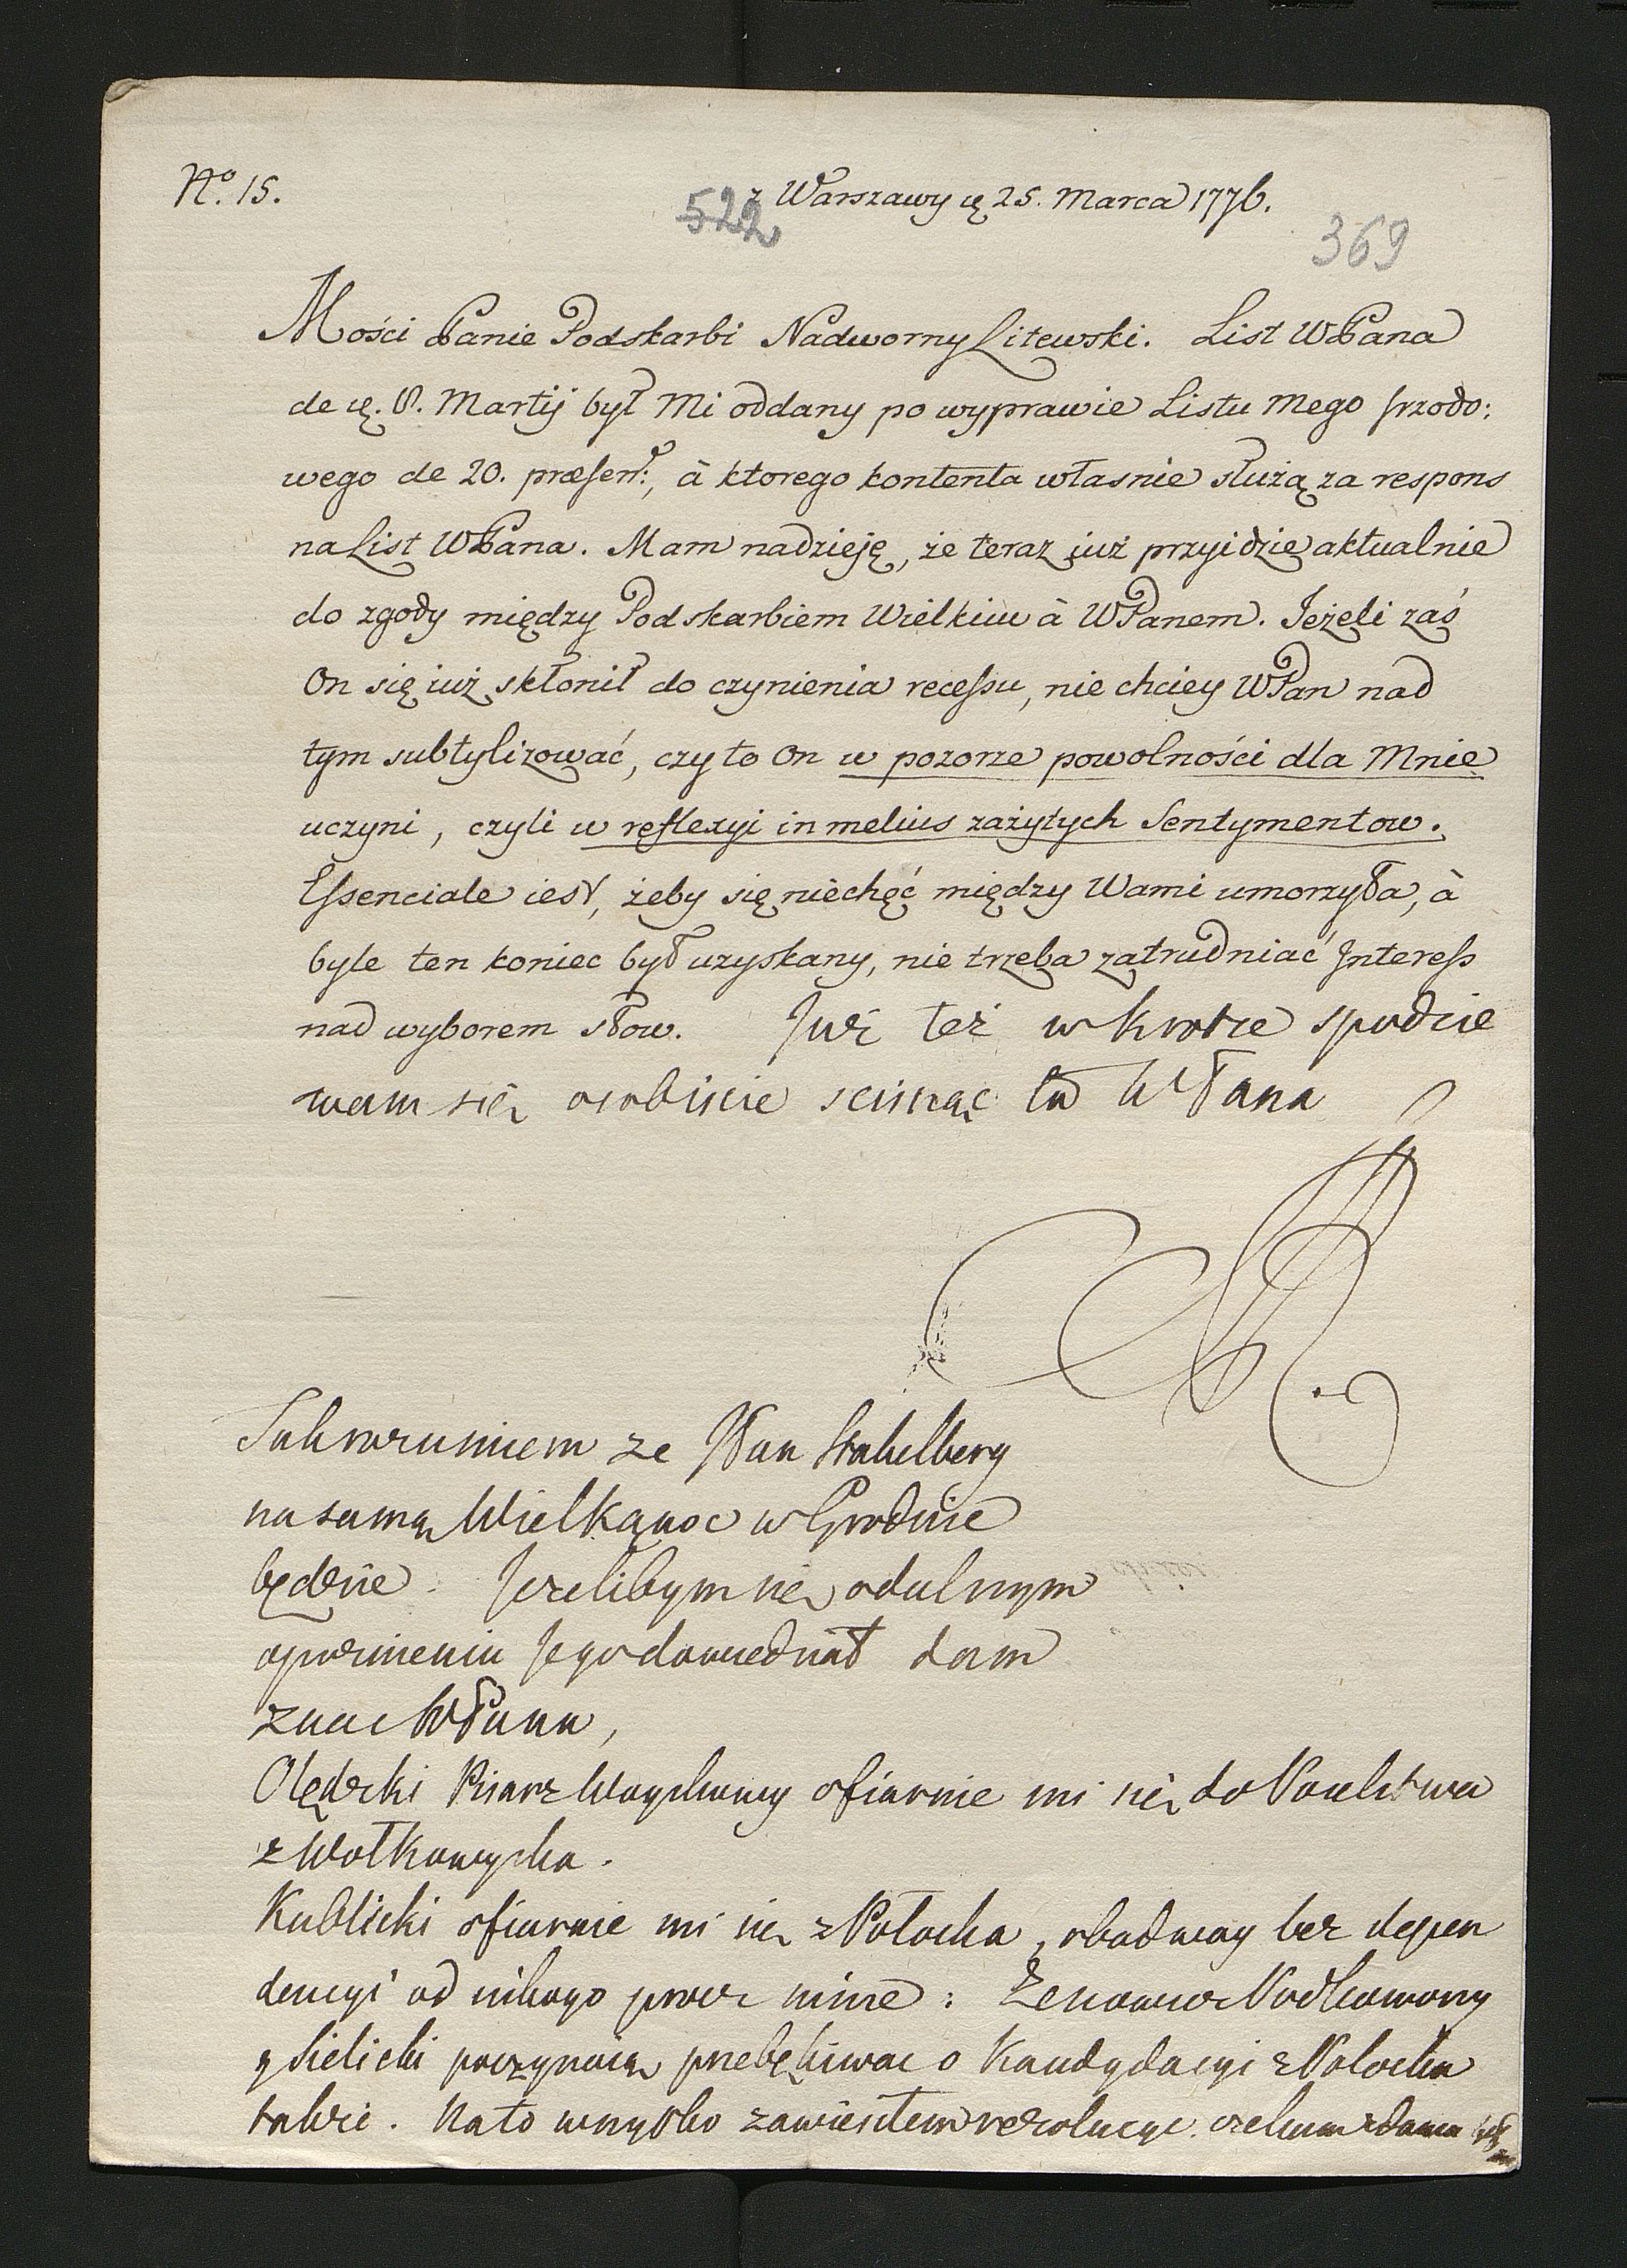 No. 15.
z Warszawy d. 25. Marca 1776.
522
369
Mości Panie Podskarbi Nadworny Litewski. List WPana
de d. 8. Martij był Mi oddany po wyprawie Listu Mego przodo:
wego de 20. præsent:, à ktorego kontenta własnie służą za respons
na List WPana. Mam nadzieję, że teraz już przyidzie aktualnie
do zgody między Podskarbiem Wielkim à WPanem. Jeżeli zaś
On się iuż skłonił do czynienia recessu, nie chciey WPan nad
tym subtylizować, czy to On w pozorze powolności dla Mnie
uczyni, czyli w reflexyi in melius zażytych Sentymentow.
Essenciale iest, żeby się niechęć między Wami umorzyła, à
byle ten koniec był uzyskany, nie trzeba zatrudniać Interess
nad wyborem słow. Już też w krotce spodzie
wam się osobiscie sciskać tu WPana
Tak rozumiem ze JPan Stakelberg
na samą Wielkąnoc w Grodnie
będzie. Jezelibym się o dalszym
opoznieniu Jego dowiedział dam
znac WPanu,
Olędzki Pisarz Woyskowy ofiaruie mi się do Poselstwa
z Wołkowyska.
Kublicki ofiaruie mi się z Połocka, obadway bez depen
dencyi od nikogo procz mnie: Zenowicz Podkomorzy
y Sielicki poczynaią przebękiwac o Kandydacyi z Połocka
takze. Na to wszystko zawiesiłem rezolucyę. czekam zdania WP